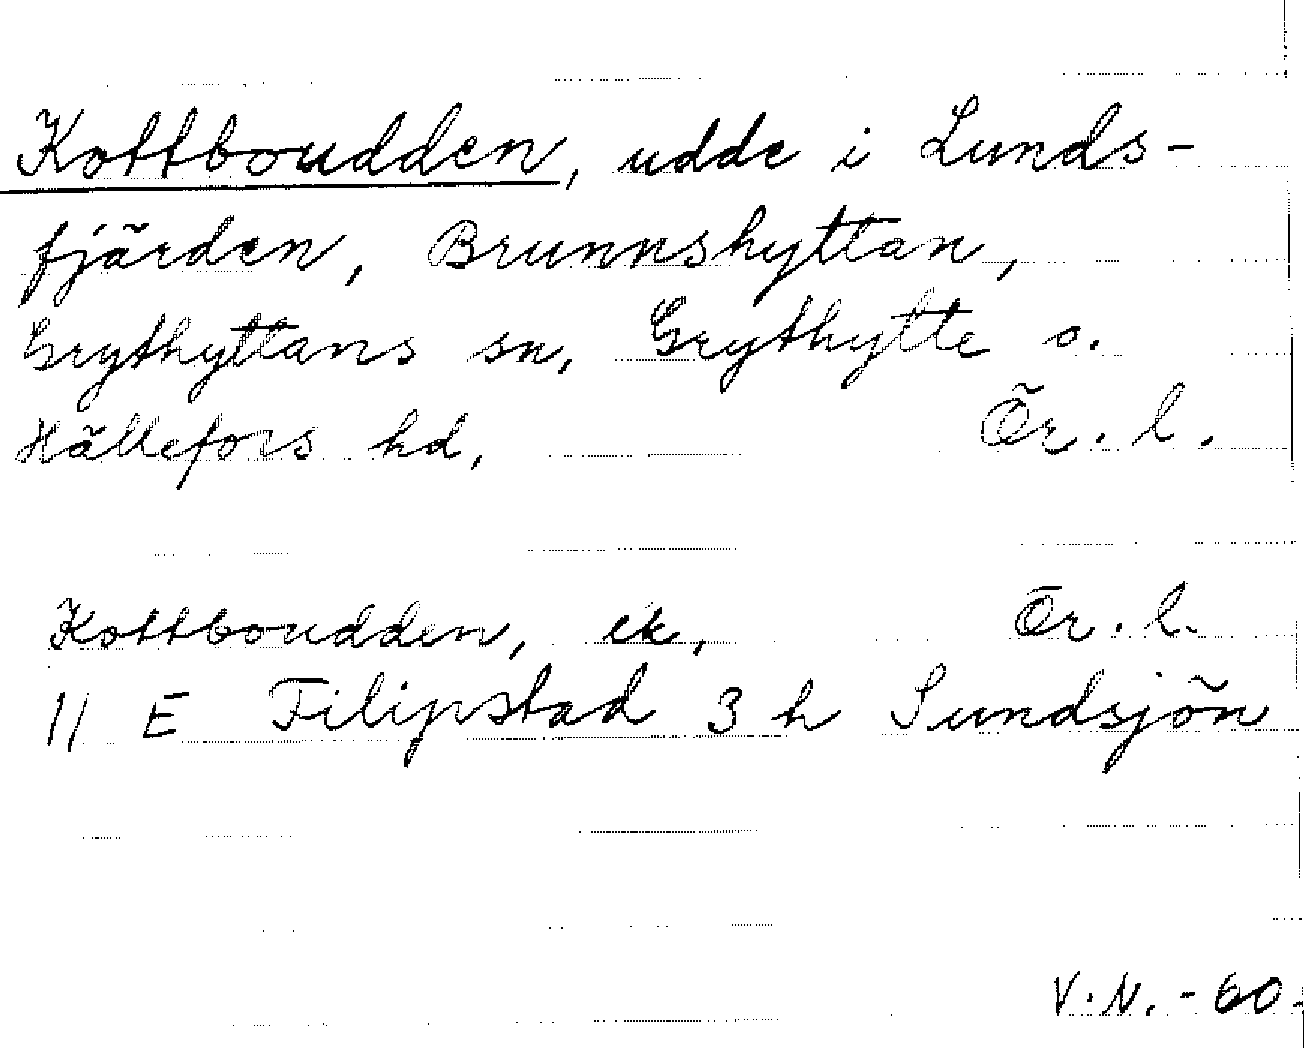 Kottboudden, udde i Lunds-
fjärden, Brunnshyttan,
Grythyttans sn, Grythytte o.
Hällefors hd, Ör. l.
Kottboudden, ek, Ör. l.
11 E Filipstad 3 h Sundsjön
V.N. -60.